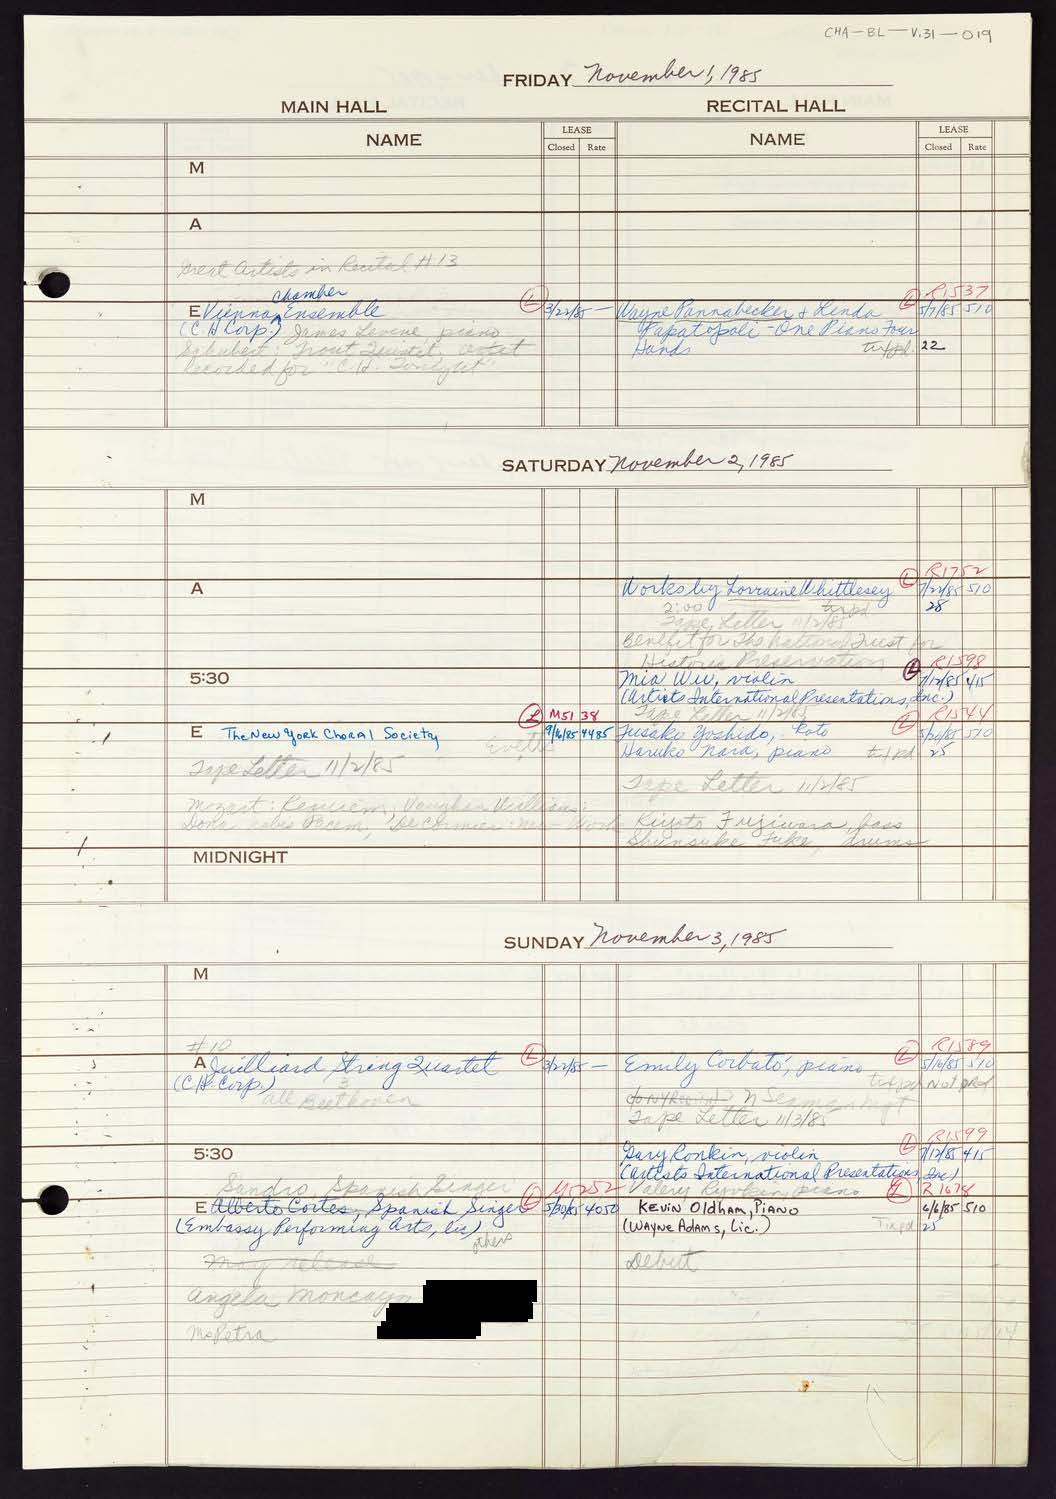 CHA-BL-V.31-019
FRIDAY November 1, 1985
MAIN HALL
RECITAL HALL
NAME
LEASE
Closed Rate
NAME
LEASE
Closed Rate
M
A
Great Artists in Recital #13
Chamber
E Vienna Ensemble
(C.H. Corp.) James Levine piano
Schubert: Trout Quintet, octet
Recorded for "C.H. Tonight"
L 3/22/85 —
Wayne Pannabecker & Linda
Papatopoli - One Piano Four
Hands
L R1537
5/7/85 510
22
SATURDAY November 2, 1985
M
A
Works by Lorraine Whittlesey
2:00
Tape Letter 11/2/85
Benefit for The National Trust for
Historic Preservation
L R1752
7/22/85 510
28
5:30
Mia Wu, violin
(Artists International Presentations, Inc.)
Tape Letter 11/2/85
L R1598
7/12/85 415
E The New York Choral Society
L M5138
9/16/85 4485
Tape Letter 11/2/85
Mozart: Requiem; Vaughan Williams:
Dona nobis Pacem; De Cormier: new work
Fusako Yoshido, - Koto
Haruko Nara, piano
L R1544
5/20/85 510
25
Tape Letter 11/2/85
Kiyoto Fujiwara, bass
Shunsuke Fuke, drums
MIDNIGHT
SUNDAY November 3, 1985
M
#10
A Juilliard String Quartet
(C.H. Corp.)
3
all Beethoven
L 3/22/85 —
Emily Corbató, piano
L R1589
5/16/85 510
Not prof
Tape Letter 11/3/85
5:30
Gary Ronkin, violin
(Artists International Presentations, Inc)
L R1599
7/12/85 415
Sandro Spanish Singer
E Alberto Cortes, Spanish Singer
(Embassy Performing Arts, lic)
others
L
5/30/85 4050
May release
Angela Moncayo
McPetra
KEVIN Oldham, PIANO
(WAYNE ADAMS, Lic.)
L R1678
6/6/85 510
25